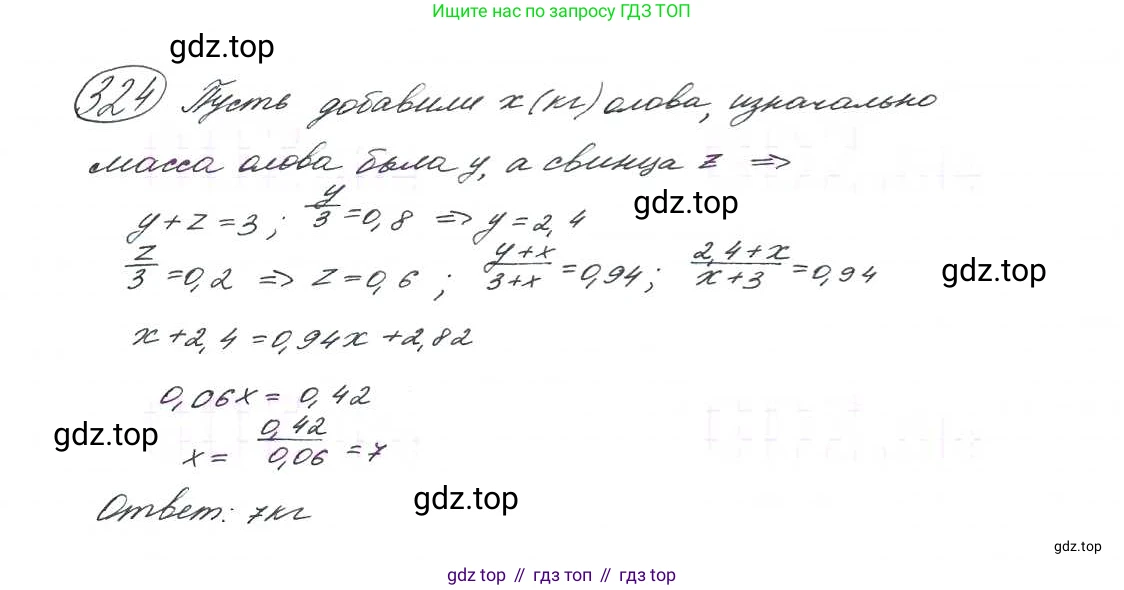 Ищите нас по запросу ГДЗ ТОП
gdz.top
324 Пусть добавили x (кг) олова, изначально
масса олова была y, а свинца z ⇒
y + z = 3 ; y/3 = 0,8 ⇒ y = 2,4
gdz.top
z/3 = 0,2 ⇒ z = 0,6 ; y+x/3+x = 0,94 ; 2,4+x/x+3 = 0,94
gdz.top
x + 2,4 = 0,94x + 2,82
0,06x = 0,42
gdz.top
x = 0,42/0,06 = 7
Ответ: 7кг
gdz.top
gdz.top
gdz top // гдз топ // гдз top